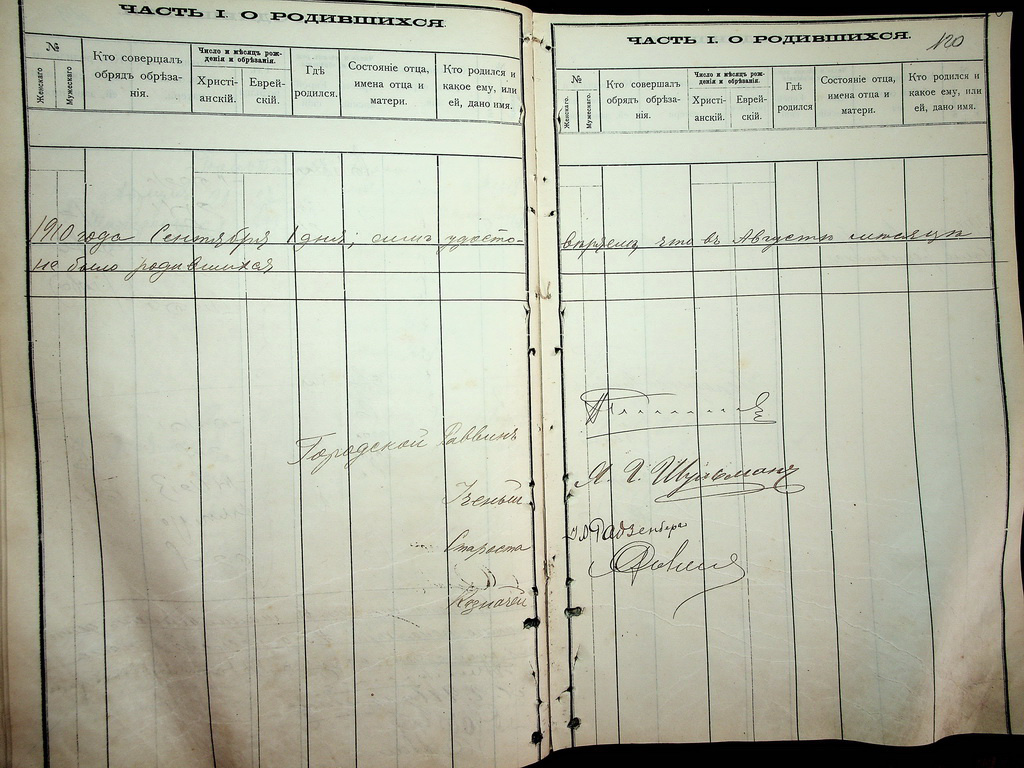 ЧАСТЬ I. О РОДИВШИХСЯ.
№
Женскаго.
Мужескаго.
Кто совершалъ обрядъ обрѣза-
нія.
Число и мѣсяцъ рож-
денія и обрѣзанія.
Христі-
анскій.
Еврей-
скій.
Гдѣ
родился.
Состояніе отца,
имена отца и
матери.
Кто родился и
какое ему, или
ей, дано имя.
1910 года Сентября 1 дня, симъ удосто-
не было родившихся
Городской Раввинъ
Ученый
Староста
Казначей
ЧАСТЬ I. О РОДИВШИХСЯ.
120
№
Женскаго.
Мужескаго.
Кто совершалъ
обрядъ обрѣза-
нія.
Число и мѣсяцъ рож-
денія и обрѣзанія.
Христі-
анскій.
Еврей-
скій.
Гдѣ
родился
Состояніе отца,
имена отца и
матери.
Кто родился и
какое ему, или
ей, дано имя.
вѣряемъ, что въ Августѣ мѣсяцѣ
Шульманъ